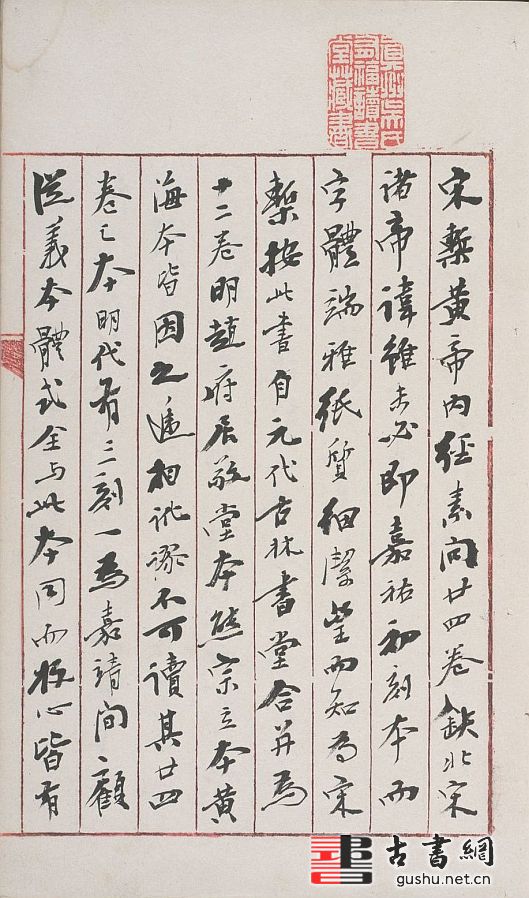 真州吳氏
有福讀書
堂藏書
宋槧黃帝內經素問廿四卷缺北宋
諱帝諱雖未必即嘉祐初刻本而
字體端雅紙質細潔望而知為宋
槧按此書自元代古林書堂合并為
十二卷明趙府居敬堂本熊宗立本黃
海本皆因之遞相訛謬不可讀其廿四
卷之本明代有三刻一為嘉靖間顧
從義本體式全与此本同而板心皆有
古書網
gushu.net.cn